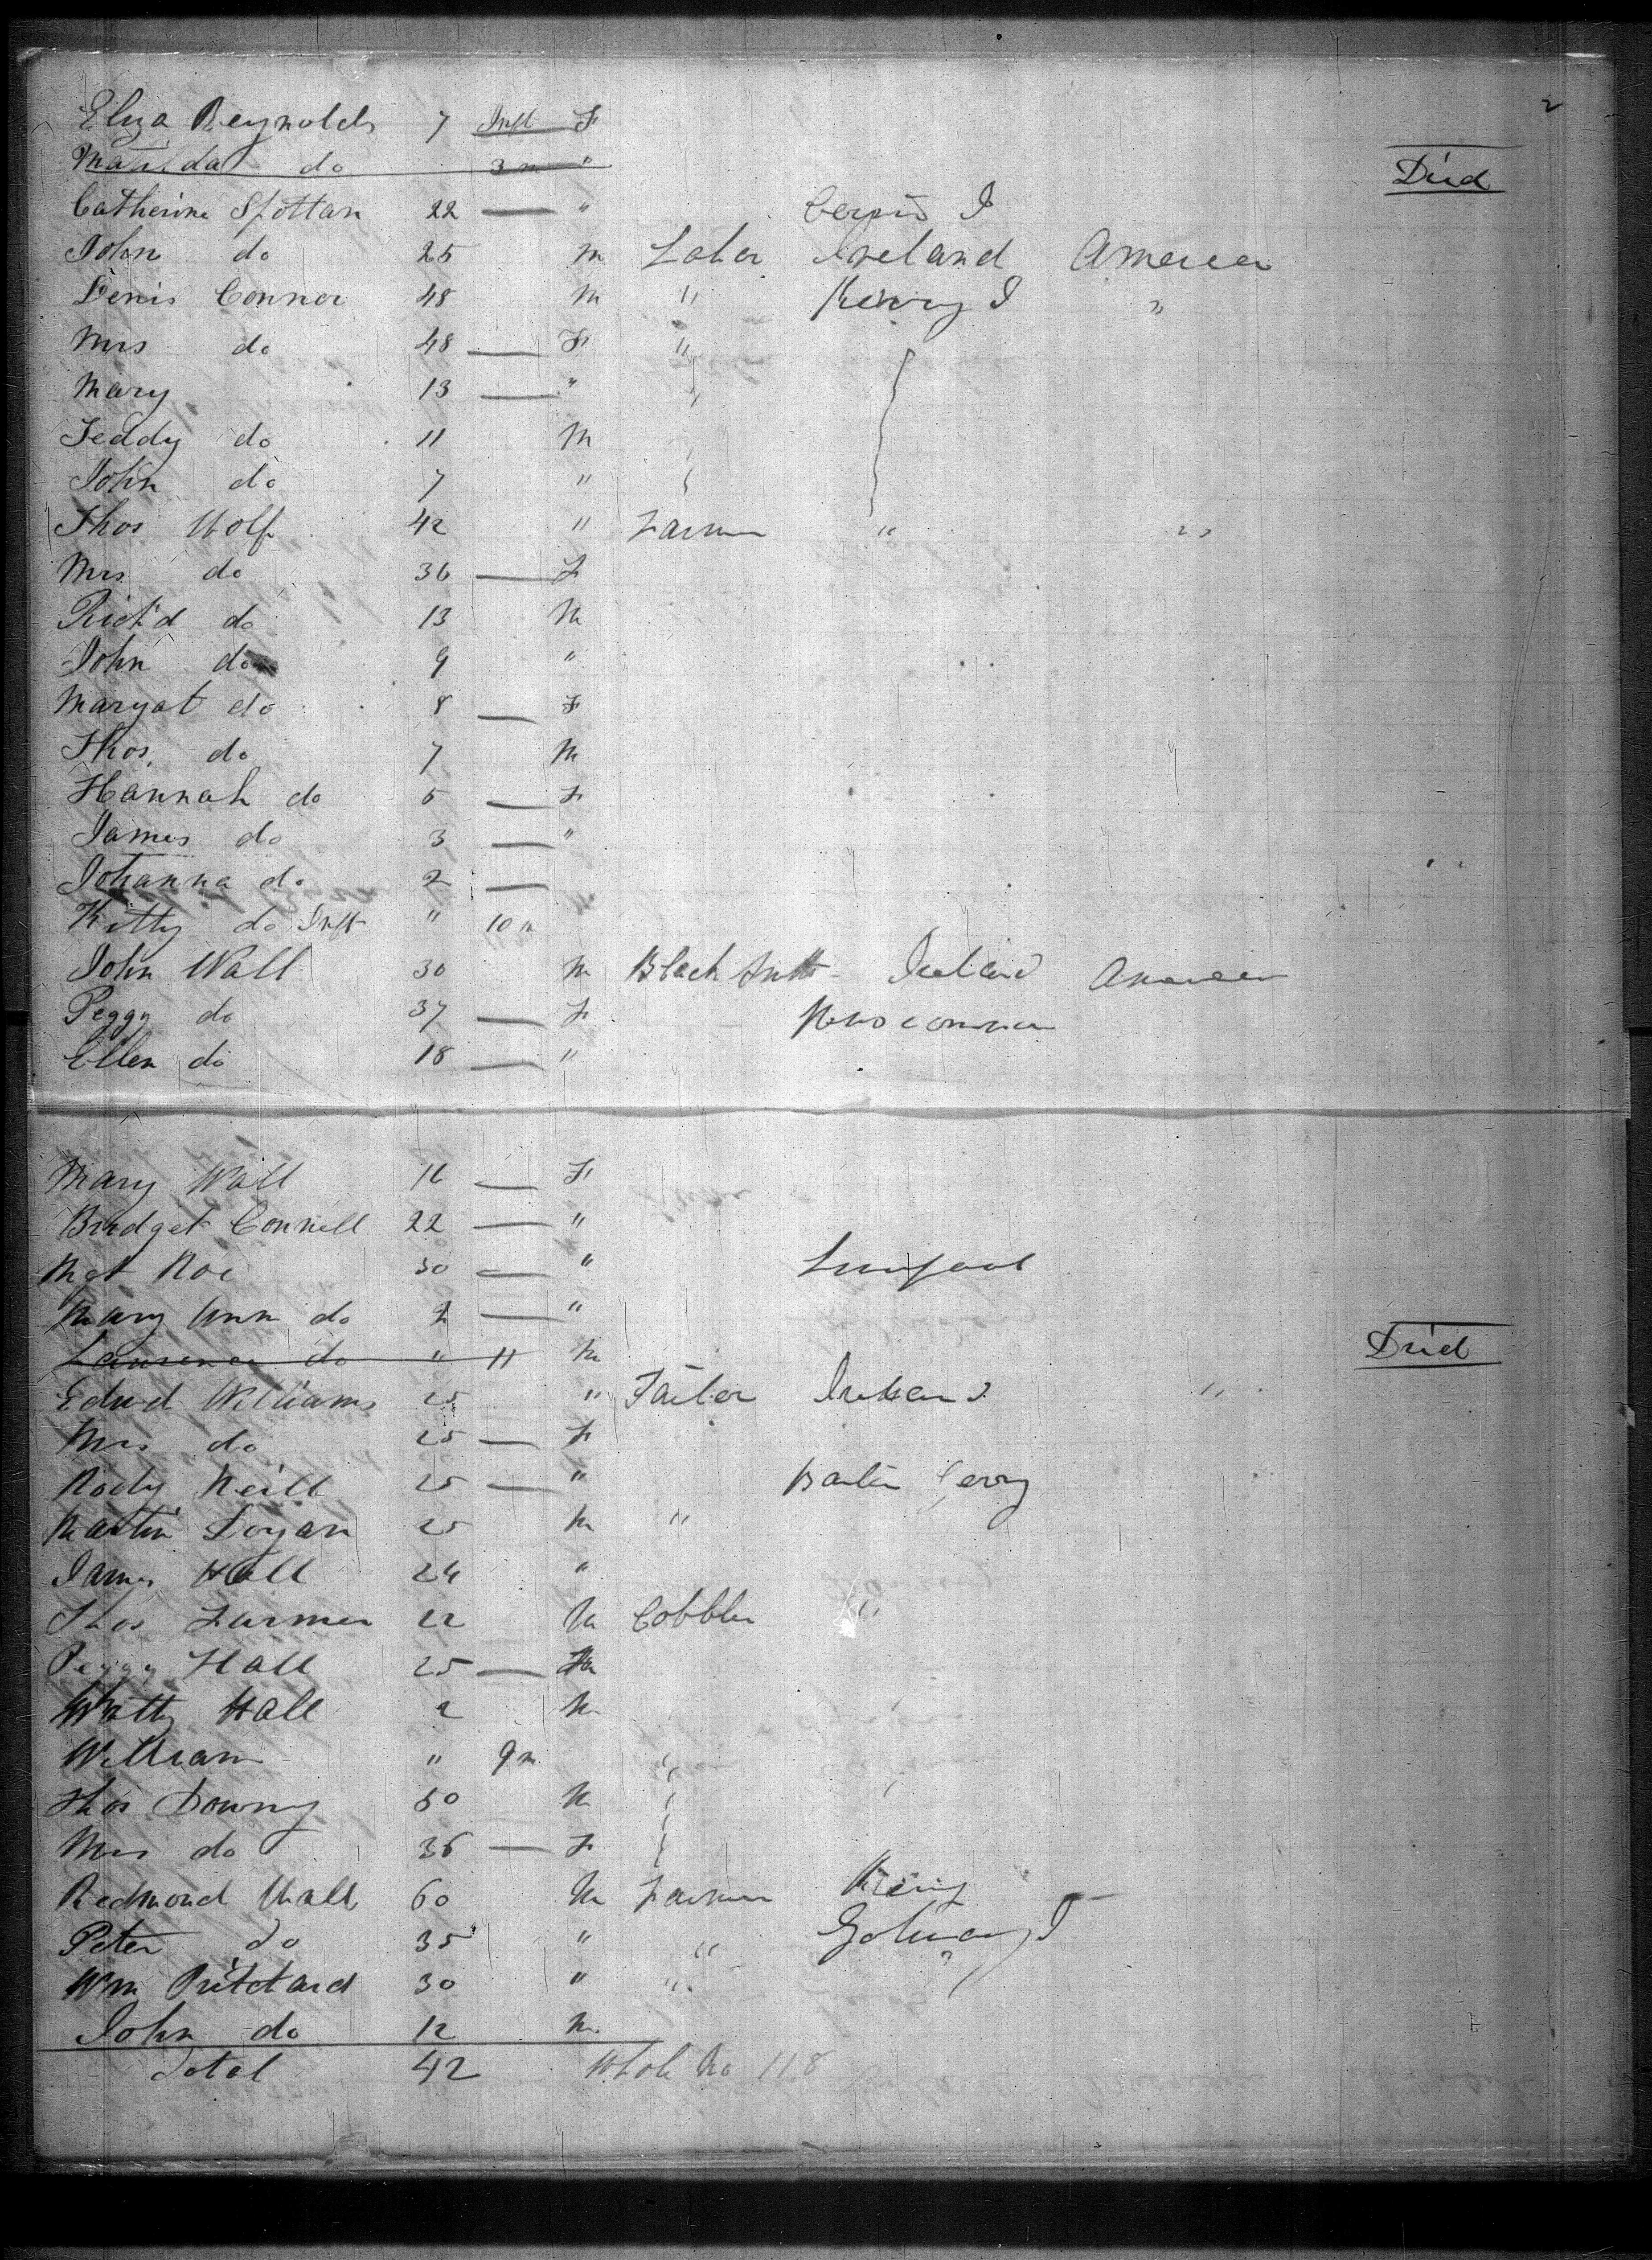 2
Eliza Reynolds 7 Inft F
Matilda do 3 m " Died
Catherine Spottan 22 — "
John do 25 M Labor Ireland America
Denis Connor 48 M " Kerry I "
Mrs do 48 — F "
Mary 13 — "
Teddy do 11 M
John do 7 "
Thos Wolf 42 " Farmer " "
Mrs do 36 — F
Rich'd do 13 M
John do 9 "
Margat do 8 — F
Thos. do 7 M
Hannah do 5 — F
James do 3 — "
Johanna do 2 —
Kitty do Inft " 10 m
John Wall 30 M Black Smith Ireland America
Peggy do 37 — F Roscommon
Ellen do 18 — "
Mary Wall 16 — F
Bridget Connell 22 — "
Mgt Roe 30 — "
Mary Ann do 2 — "
Laurence do " 11 M Died
Edwd Williams 25 " Tailor Ireland "
Mrs do 25 — F
Rody Neill 25 — "
Martin Logan 25 M "
James Hall 24 "
Thos Farmer 22 M Cobbler "
Peggy Hall 25 — F
Watty Hall 2 M
William " 9 m
Thos Downy 50 M
Mrs do 36 — F
Redmond Wall 60 M Farmer Kerry
Peter do 35 " " Galway I
Wm Pritchard 30 " " "
John do 12 M.
Total 42 Whole No 118